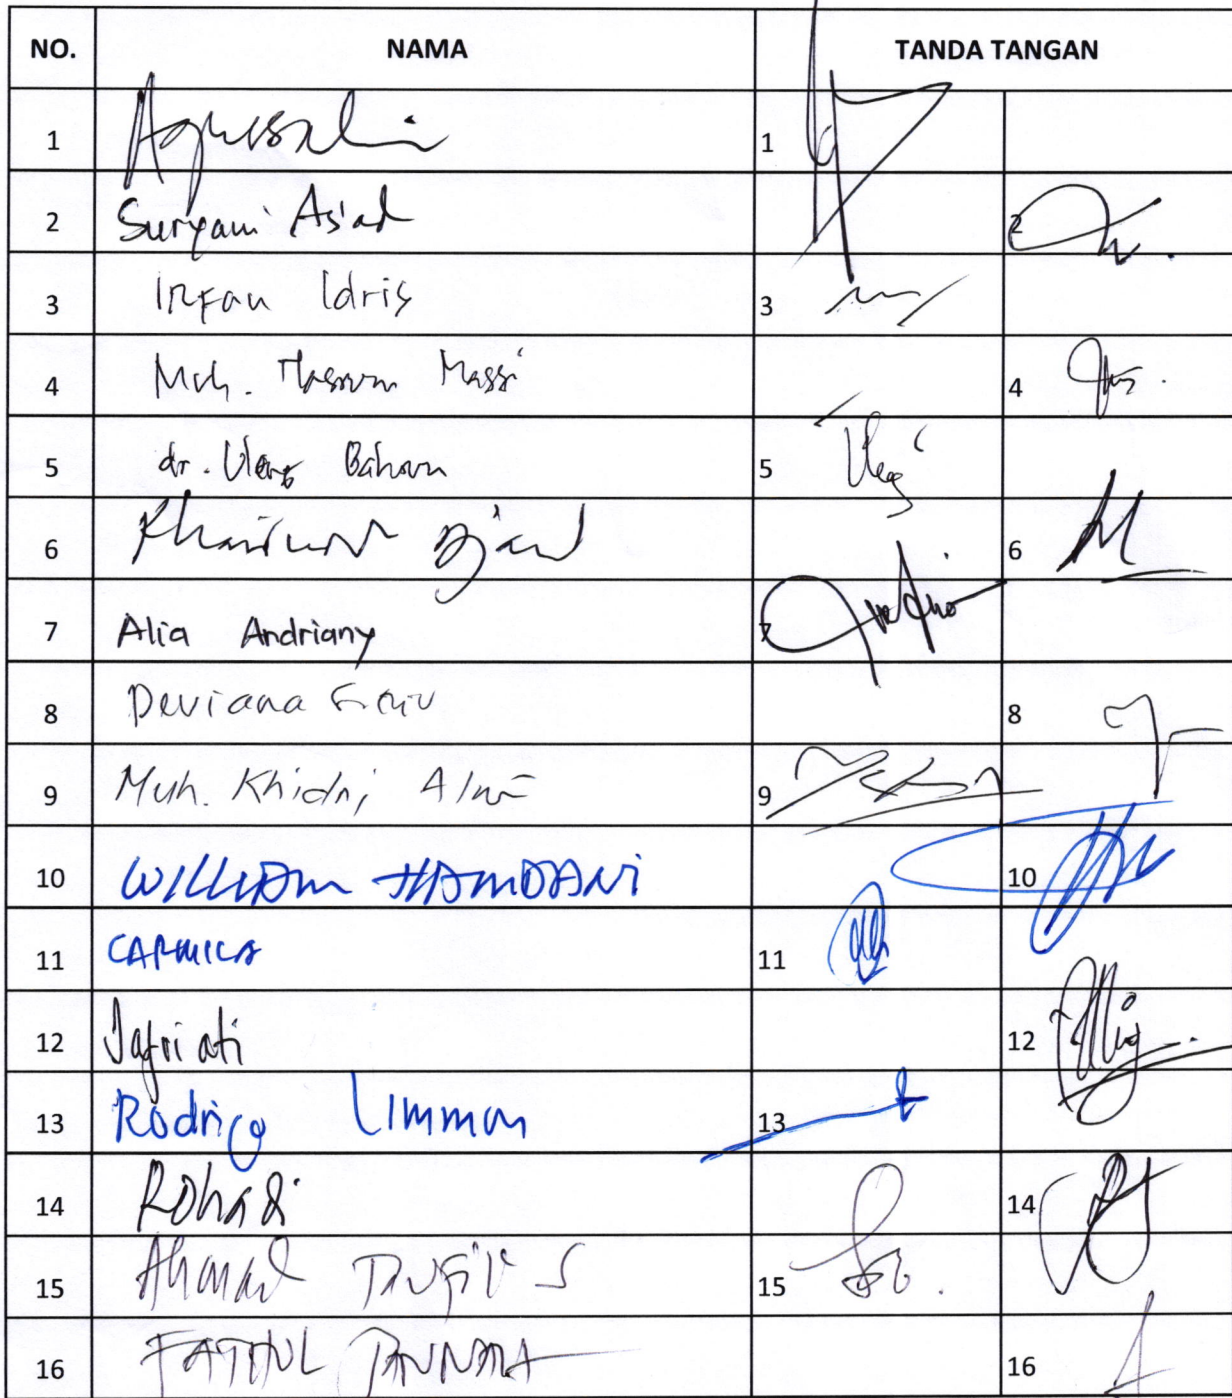 NO. NAMA TANDA TANGAN
1 Agussalim 1
2 Suryani As'ad 2
3 Irfan Idris 3
4 Muh. Massi 4
5 dr. Uleng Bahrun 5
6 6
7 Alia Andriany 7
8 Deviana 8
9 Muh. Khidri Alwi 9
10 WILLIAM HAMDANI 10
11 CARMILA 11
12 Jafriati 12
13 Rodrigo Limmon 13
14 Rohadi 14
15 Ahmad Taufik S 15
16 FATHUL PANNARA 16